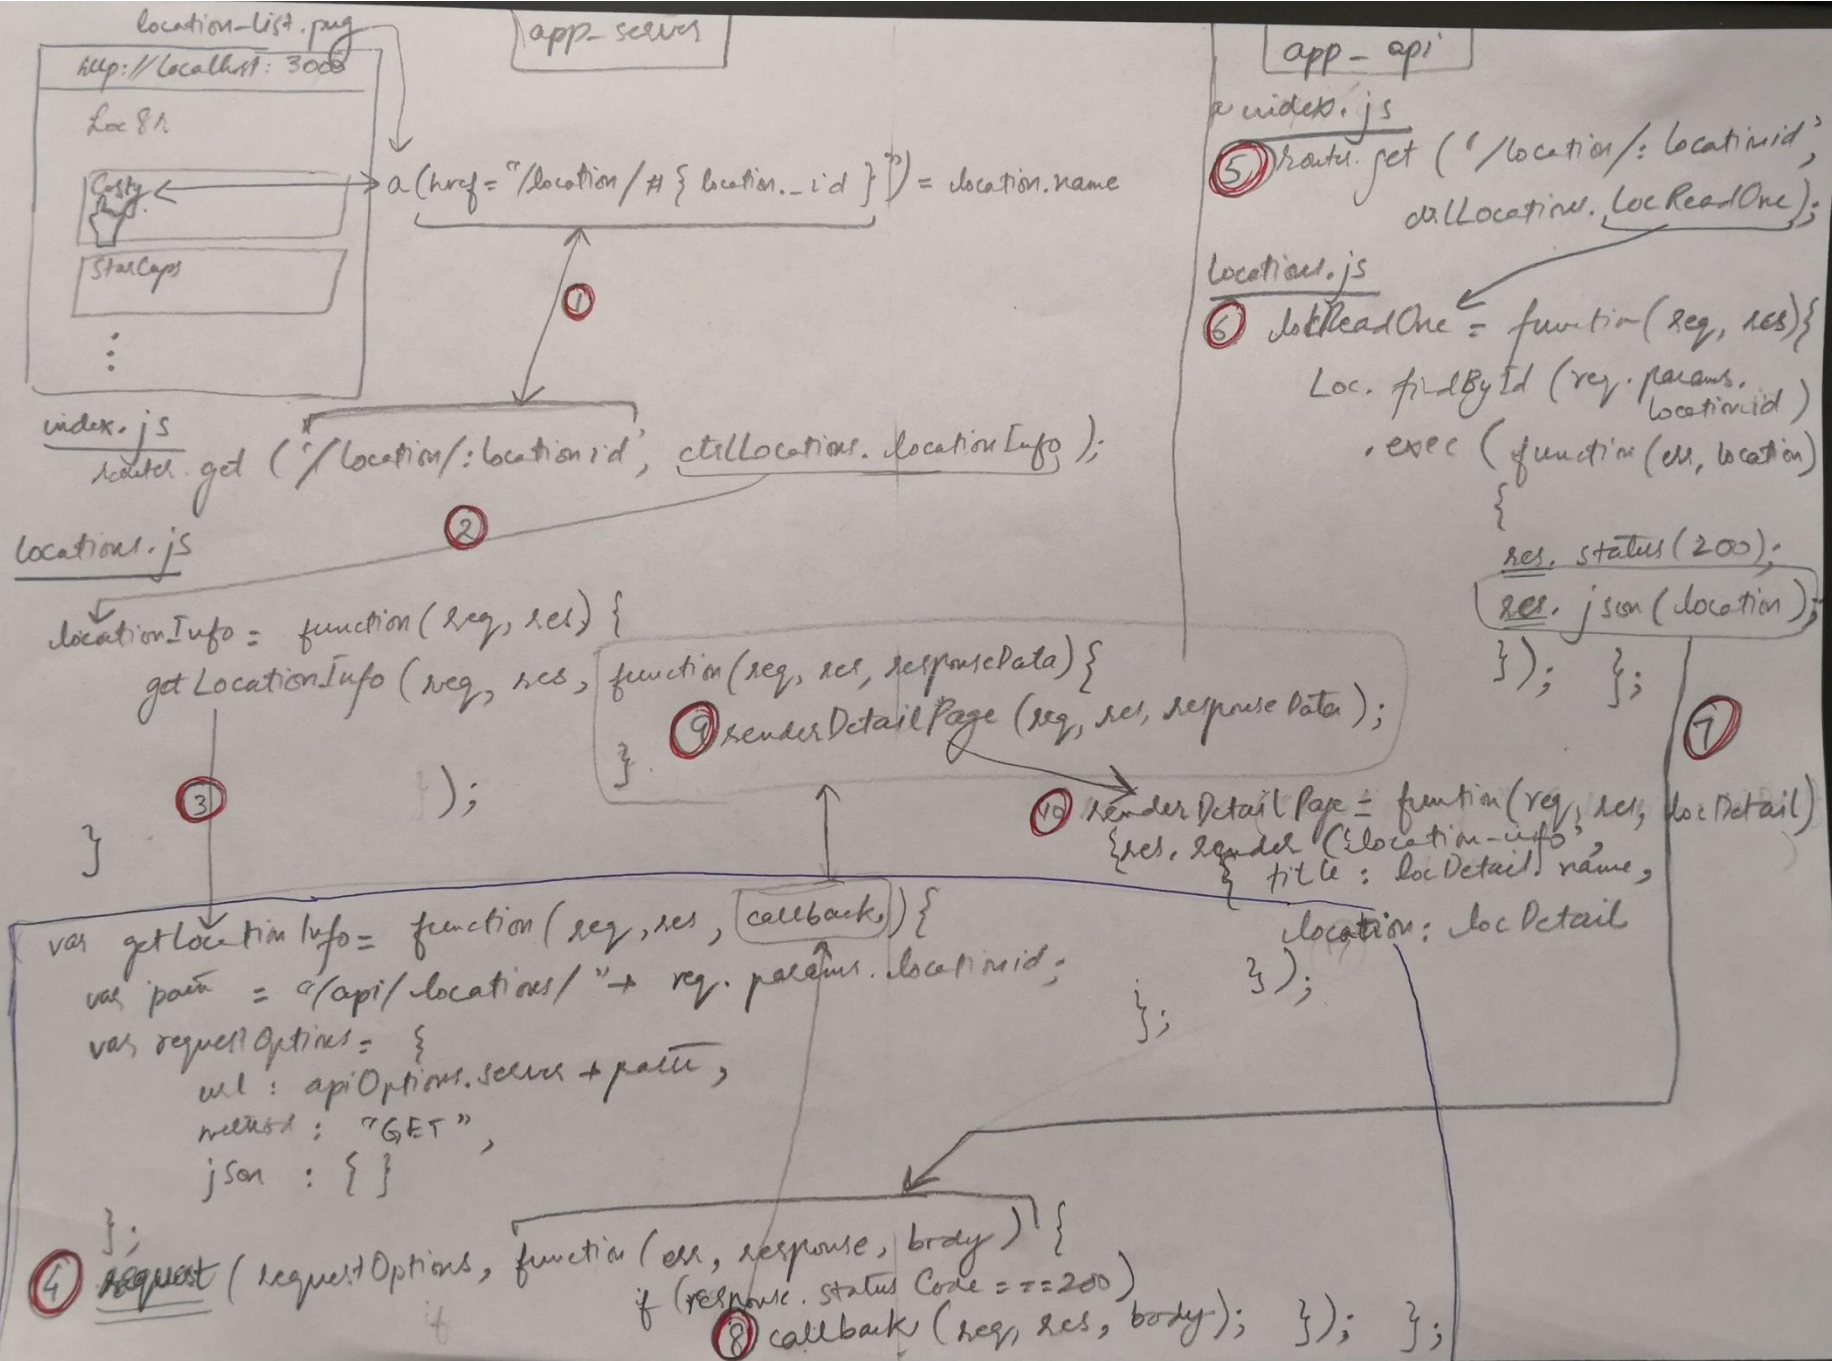 location-list.pug
http://localhost: 3000
Loc8r
Costy
StarCups
app_server
a(href="/location/#{location._id}") = location.name
①
index.js
router.get ('/location/:locationid', ctrlLocations.locationInfo);
②
locations.js
locationInfo = function(req, res) {
getLocationInfo (req, res, function(req, res, responseData){
⑨ renderDetailPage (req, res, responseData);
}
③
});
}
⑩ renderDetailPage = function(req, res, locDetail)
{res.render ('location-info',
{ title : locDetail.name,
location: locDetail
});
};
var getLocationInfo = function(req, res, callback){
var path = "/api/locations/" + req.params.locationid;
var requestOptions = {
url : apiOptions.server + path,
method : "GET",
json : { }
};
④ request (requestOptions, function(err, response, body) {
if
if (response.statusCode === 200)
⑧ callback (req, res, body); }); };
app_api
index.js
⑤ router.get ('/location/:locationid',
ctrlLocations.locReadOne);
locations.js
⑥ locReadOne = function(req, res){
Loc.findById (req.params.
locationid)
.exec (function(err, location)
{
res.status(200);
res.json(location);
}); };
⑦